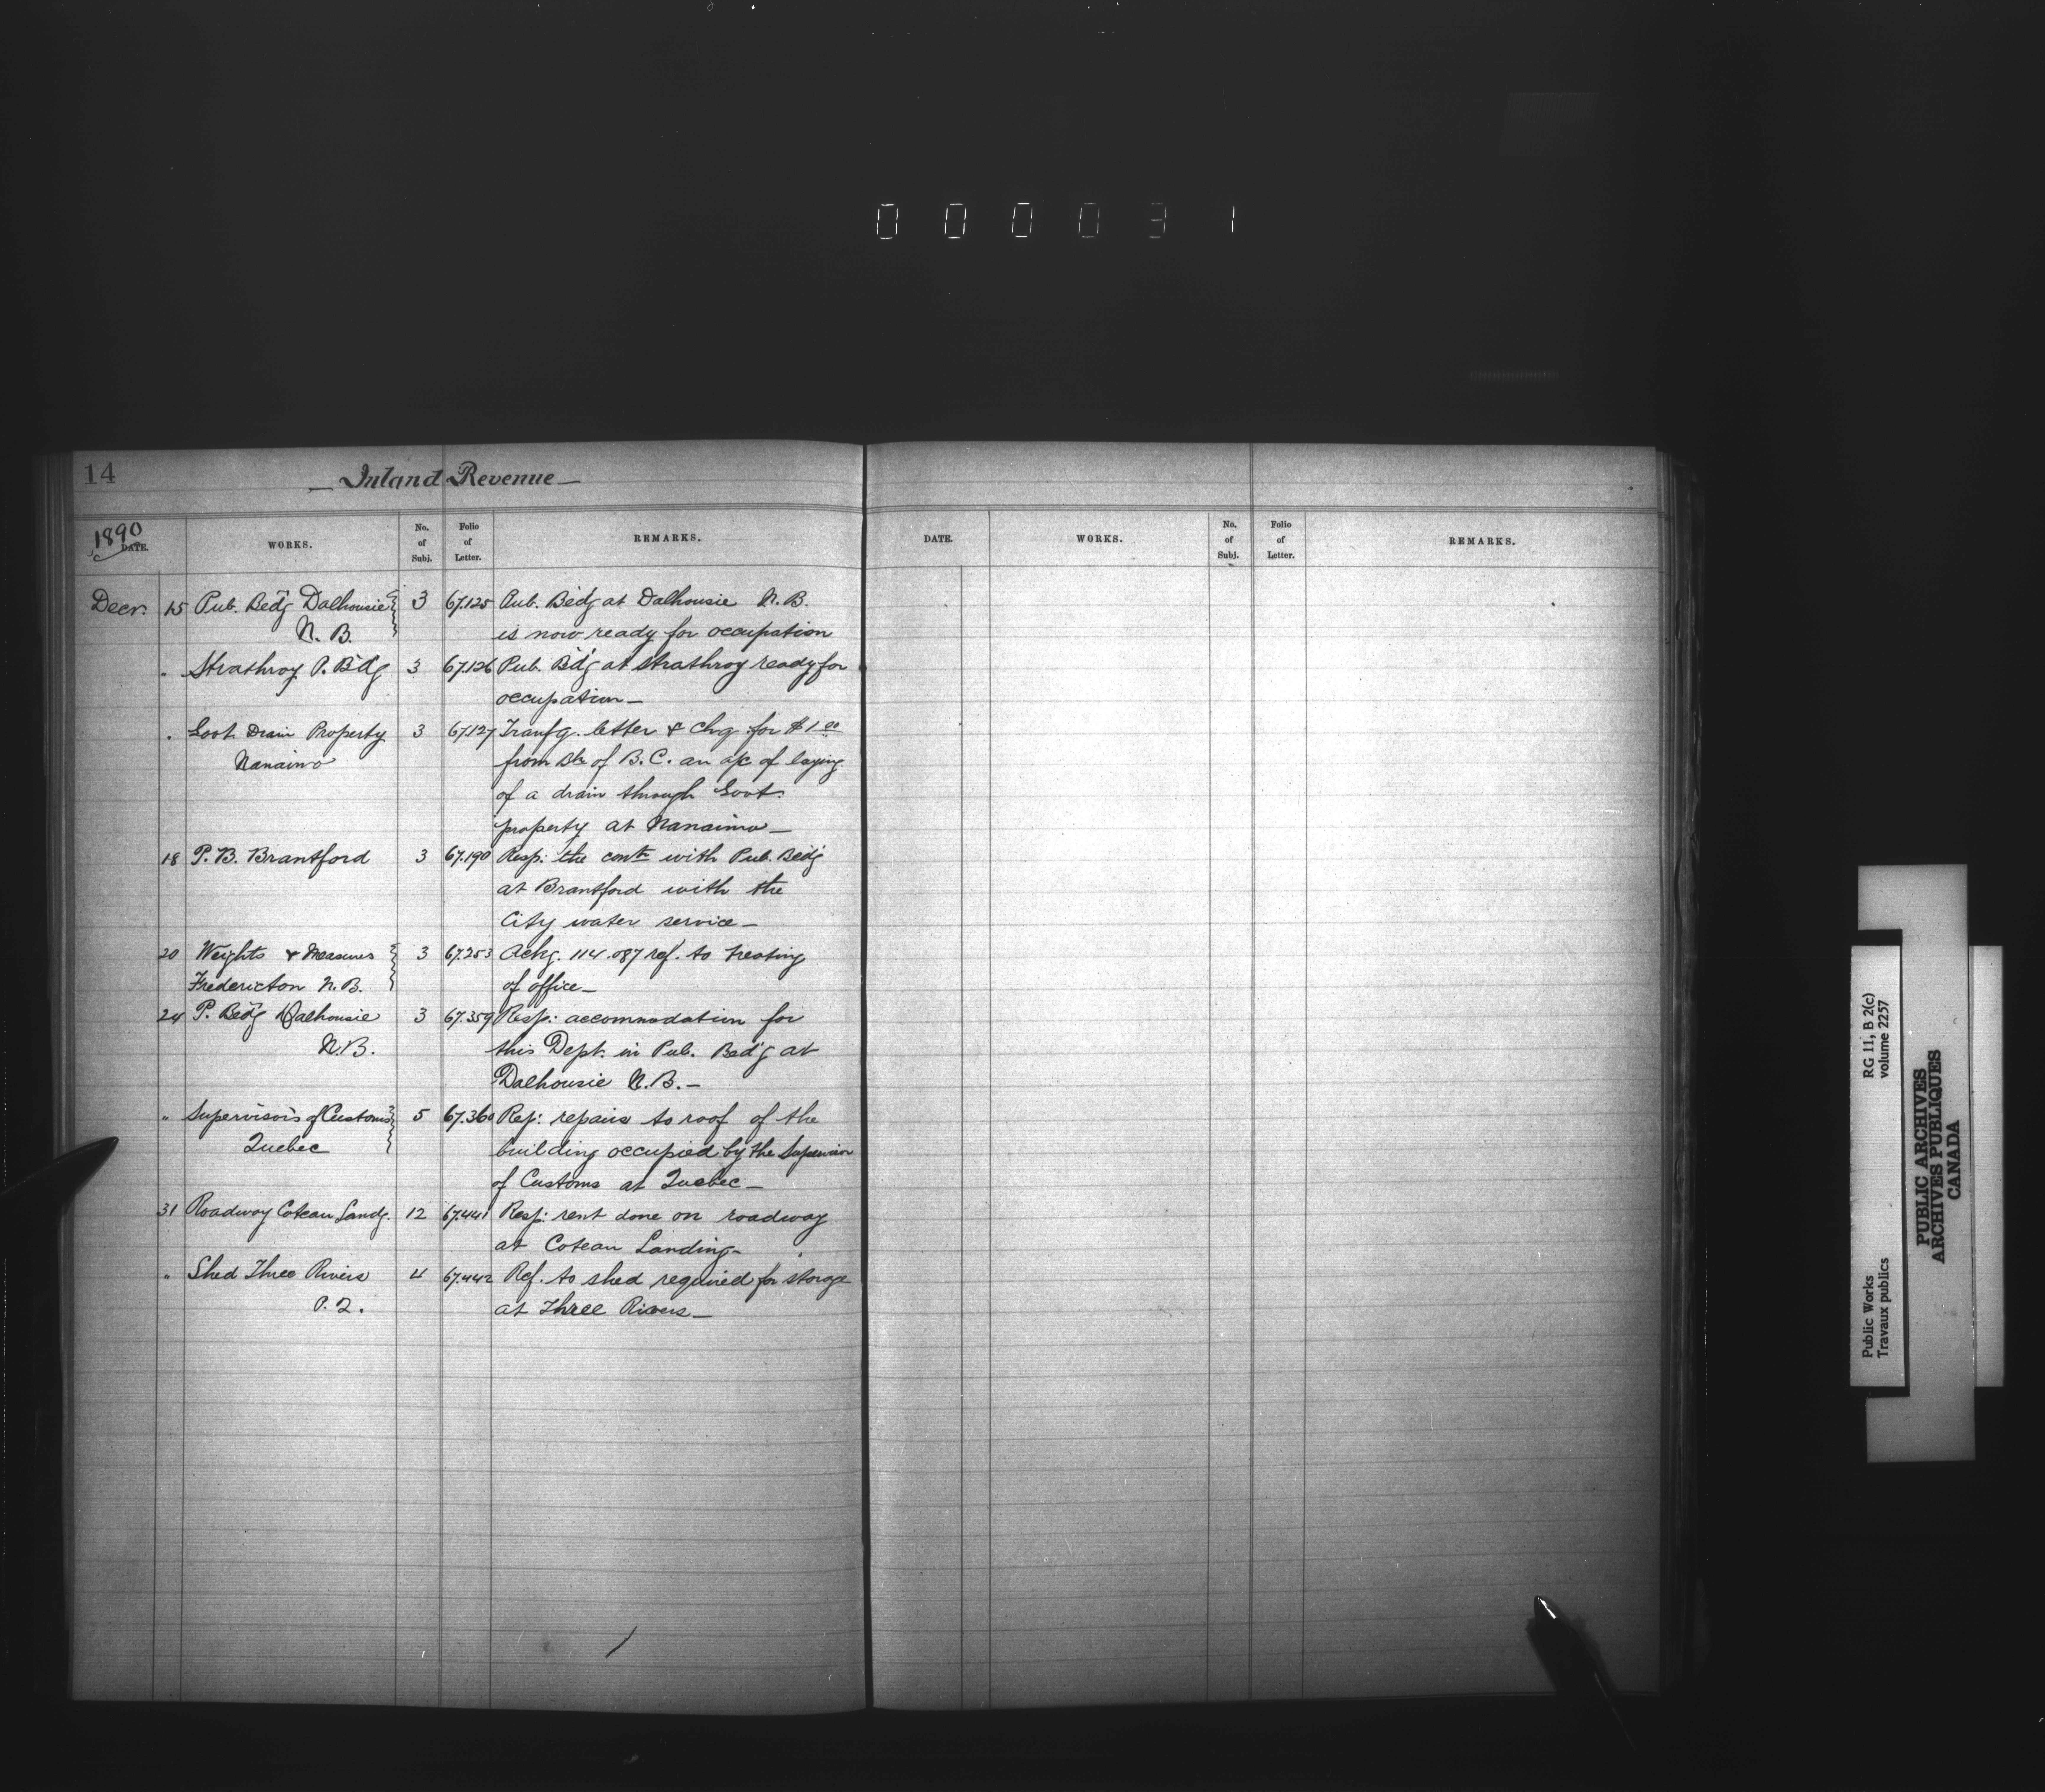 000031
14
Inland Revenue
1890
DATE. WORKS. No. of Subj. Folio of Letter. REMARKS.
DATE. WORKS. No. of Subj. Folio of Letter. REMARKS.
Decr. 15 Pub. Bldg Dalhousie 3 67.125 Pub. Bldg at Dalhousie N.B.
N. B. is now ready for occupation
" Strathroy P. Bldg 3 67.126 Pub. Bldg at Strathroy ready for
occupation
" Govt. Drain Property 3 67.127 Tranfg. letter & chq. for $1 00
Nanaimo from Bk of B.C. an a/c of laying
of a drain through Govt.
property at Nanaimo
18 P. B. Brantford 3 67.190 Resp: the with Pub. Bldg
at Brantford with the
City water service
20 Weights & Measures 3 67.253 Ackg. 114.087 ref. to heating
Fredericton N. B. of office
24 P. Bldg Dalhousie 3 67.359 Resp: accommodation for
N.B. this Dept. in Pub. Bld'g at
Dalhousie N.B.
" Supervisor's of Customs 5 67.360 Rep: repairs to roof of the
Quebec building occupied by the Supervisor
of Customs at Quebec
31 Roadway Coteau Landg. 12 67.441 Resp: done on roadway
at Coteau Landing
" Shed Three Rivers 4 67.442 Ref. to shed required for storage
P. Q. at Three Rivers
Public Works RG 11, B 2(c)
Travaux publics volume 2257
PUBLIC ARCHIVES
ARCHIVES PUBLIQUES
CANADA